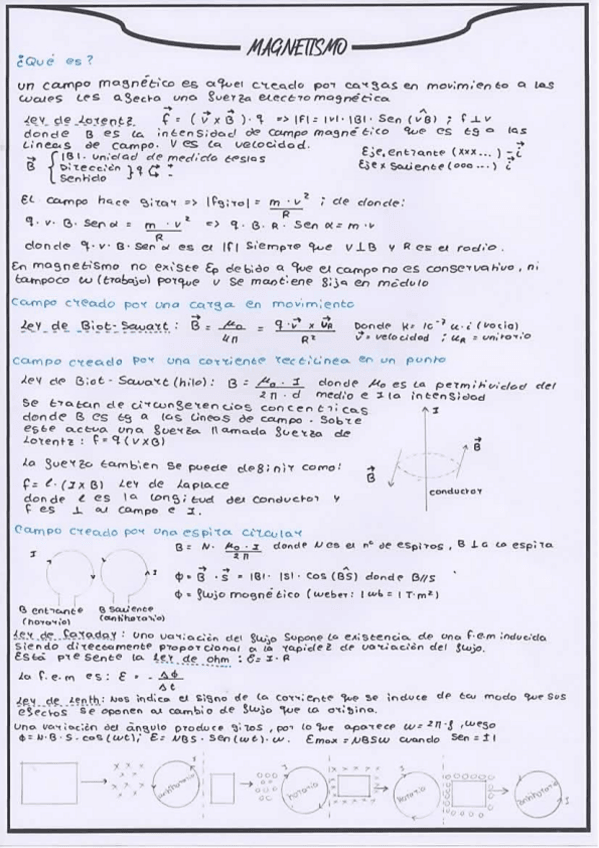 MAGNETISMO
¿Qué es?
un campo magnético es aquel creado por cargas en movimiento a las
cuales les afecta una fuerza electromagnética
Ley de Lorentz f⃗ = (v⃗ x B⃗) · q => |F| = |v| · |B| · Sen (v̂B) ; f ⊥ v
donde B es la intensidad de campo magnético que es tg a las
líneas de campo. V es la velocidad.
B⃗ { |B| · unidad de medida teslas
Dirección
Sentido
Eje, entrante (xxx...) -i⃗
Eje x saliente (ooo...) i⃗
El campo hace girar => |fgiro| = m · v² / R ; de donde:
q · v · B · Sen α = m · v² / R => q · B · R · Sen α = m · v
donde q · v · B · Sen α es el |f| siempre que v ⊥ B y R es el radio.
En magnetismo no existe Ep debido a que el campo no es conservativo, ni
tampoco w (trabajo) porque v se mantiene fija en módulo
Campo creado por una carga en movimiento
Ley de Biot-Savart: B⃗ = μ₀ / 4π = q · v⃗ x u⃗R / R² Donde K = 10⁻⁷ u.i (vacío)
v⃗ = velocidad ; uR = unitario
Campo creado por una corriente rectilínea en un punto
Ley de Biot-Savart (hilo): B = μ₀ · I / 2π · d donde μ₀ es la permitividad del
medio e I la intensidad
Se tratan de circunferencias concentricas
donde B es tg a las líneas de campo. Sobre
este actua una fuerza llamada fuerza de
Lorentz: f = q (v x B)
I
B⃗
B⃗
conductor
La fuerza tambien se puede definir como:
f = l · (I x B) Ley de Laplace
donde l es la longitud del conductor y
f es ⊥ al campo e I.
Campo creado por una espira circular
I
I
B entrante
(horario)
B saliente
(antihorario)
B = N · μ₀ · I / 2π donde N es el nº de espiras, B ⊥ a la espira
φ = B⃗ · s⃗ = |B| · |S| · cos (B̂S) donde B//s
φ = flujo magnético (weber: 1wb = 1T·m²)
Ley de faraday: una variación del flujo supone la existencia de una f.e.m inducida
siendo directamente proporcional a la rapidez de variación del flujo.
Está presente la Ley de ohm: ε = I · R
La f.e.m es: ε = - Δφ / Δt
Ley de Lenth: Nos indica el signo de la corriente que se induce de tal modo que sus
efectos se oponen al cambio de flujo que la origina.
una variación del ángulo produce giros, por lo que aparece w = 2π · f, luego
φ = N · B · S · cos (wt); ε = NBS · Sen (wt) · w. Emax = NBSW cuando Sen = ±1
antihorario
I
horario
I
horario
I
antihorario
I